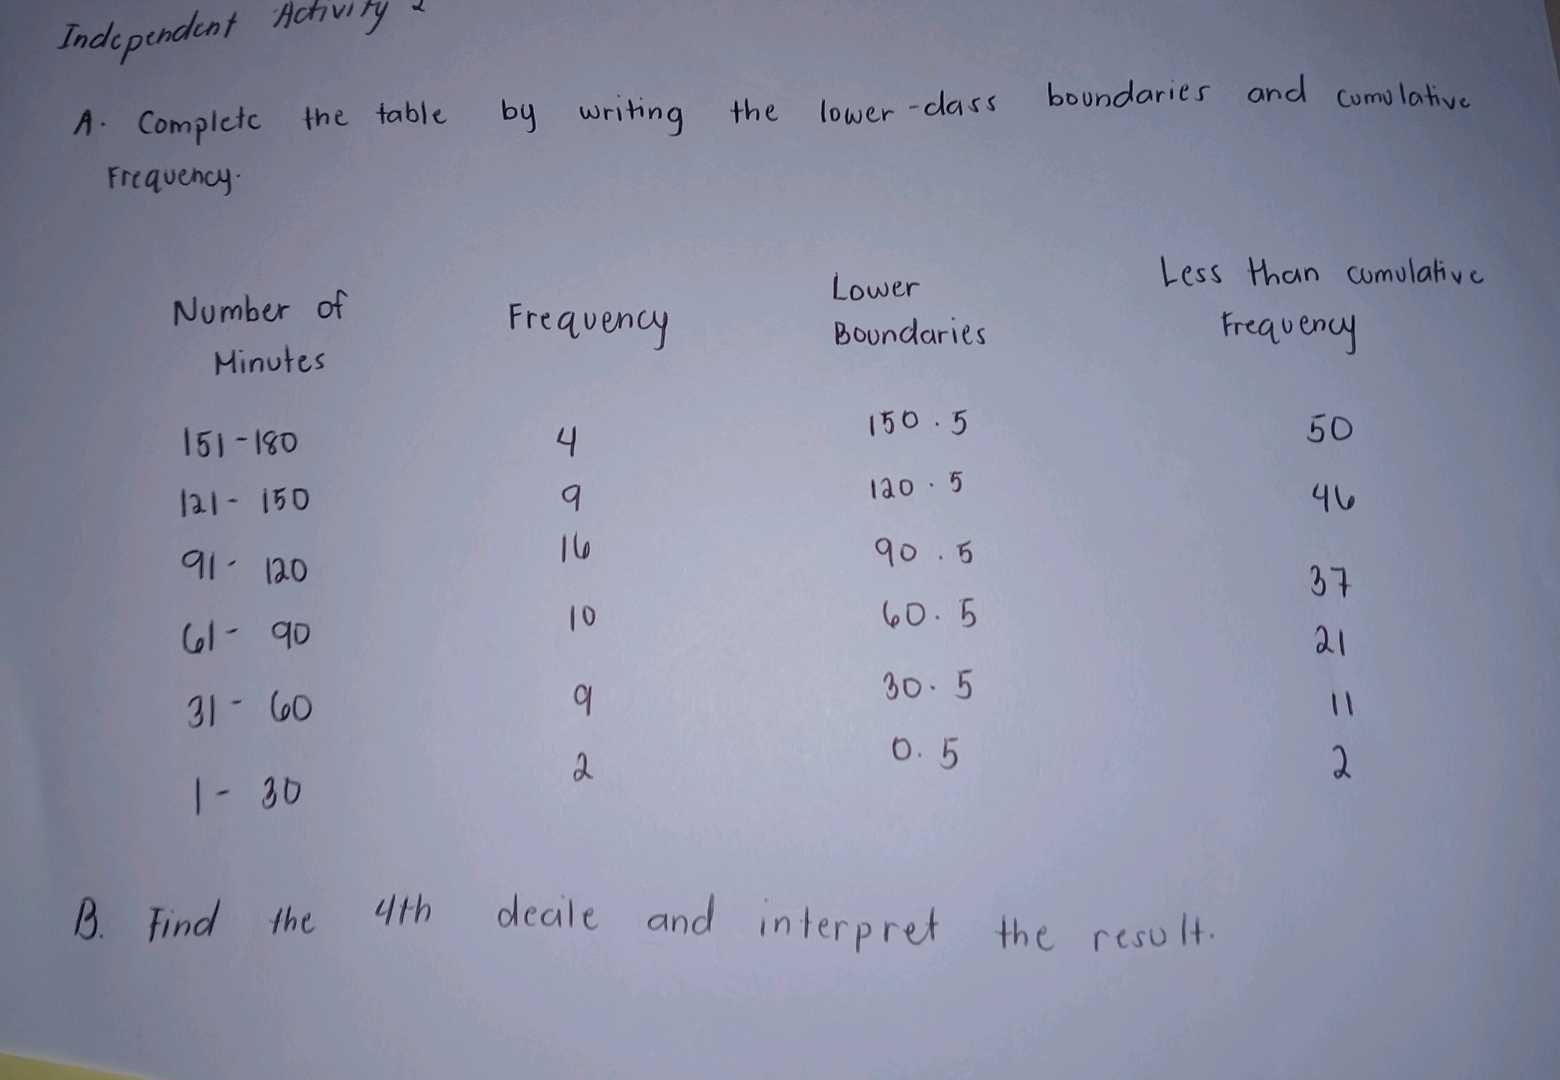 Independent Activity 2
A. Complete the table by writing the lower-class boundaries and cumulative
Frequency.
Number of Minutes Frequency Lower Boundaries Less than cumulative Frequency
151-180 4 150.5 50
121-150 9 120.5 46
91-120 16 90.5 37
61-90 10 60.5 21
31-60 9 30.5 11
1-30 2 0.5 2
B. Find the 4th decile and interpret the result.